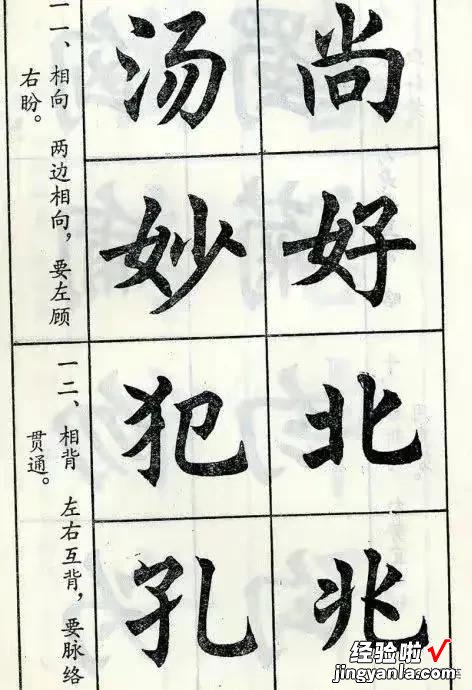 尚
好
北
兆
汤
妙
犯
孔
一一、相向 两边相向，要左顾
右盼。
一二、相背 左右互背，要脉络
贯通。
经验啦√
jingyanla.com